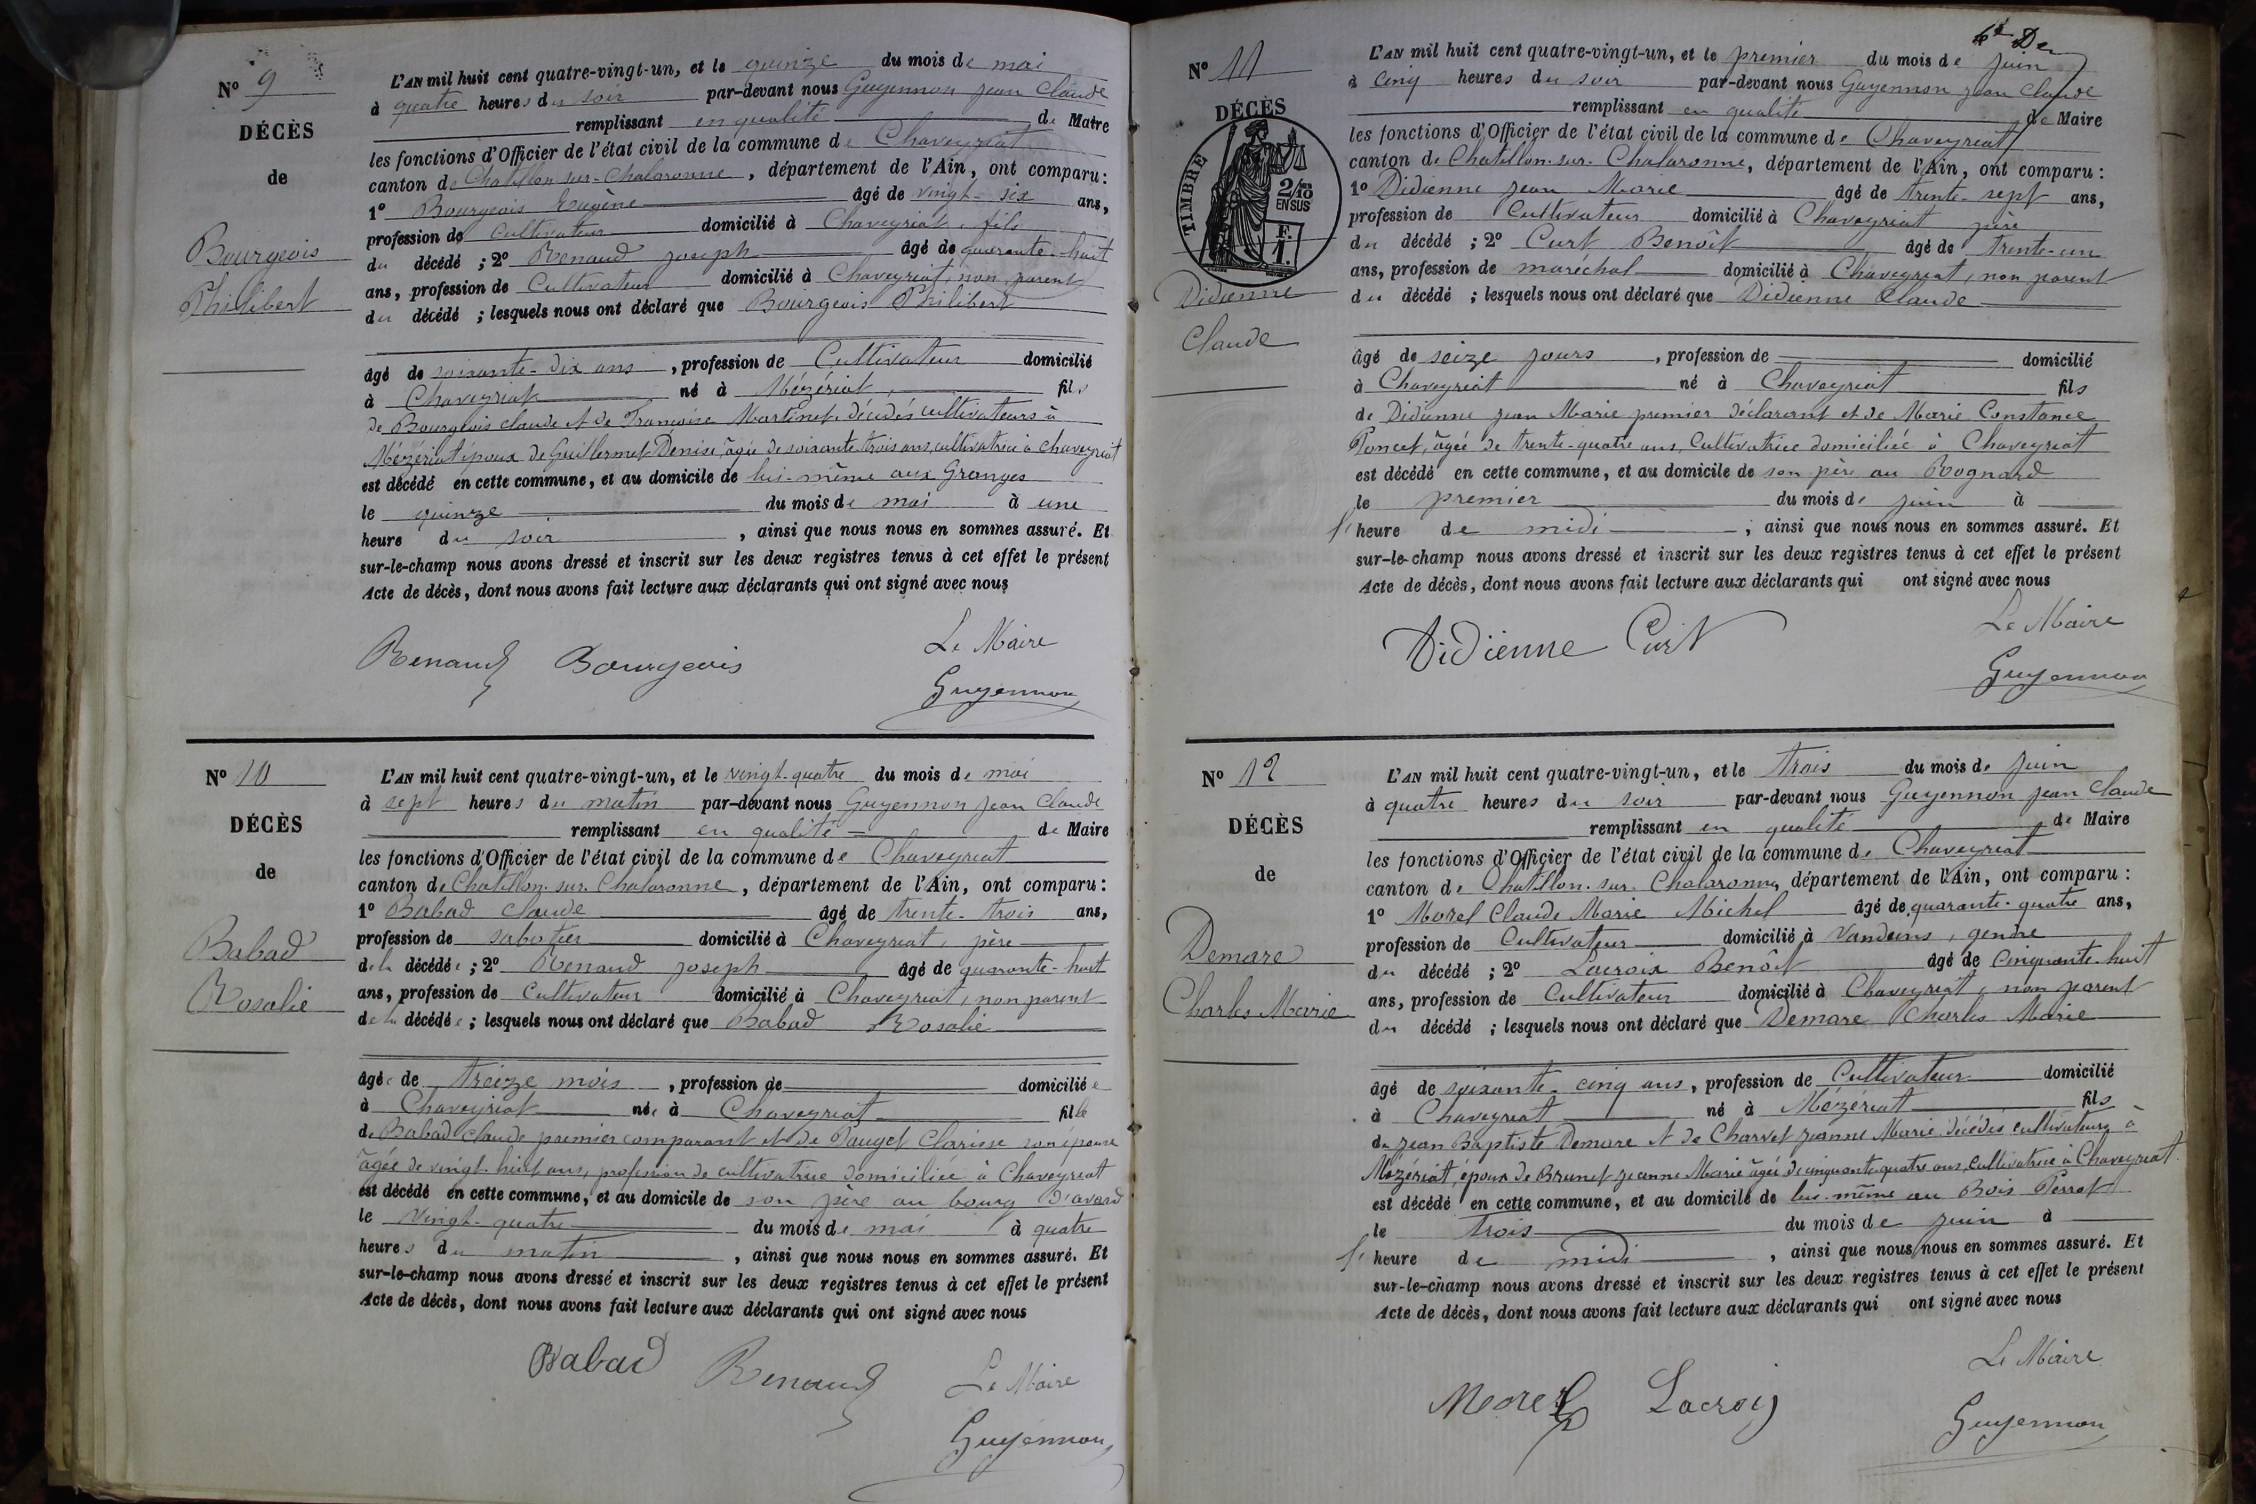 N° 9
DÉCÈS
de
Bourgeois
Philibert
L'AN mil huit cent quatre-vingt-un, et le quinze du mois de mai
à quatre heures du soir par-devant nous Guyennon Jean Claude
remplissant en qualité de Maire
les fonctions d'Officier de l'état civil de la commune de Chaveyriat
canton de Chatillon-sur-Chalaronne, département de l'Ain, ont comparu :
1° Bourgeois Eugène âgé de vingt-six ans,
profession de cultivateur domicilié à Chaveyriat, fils
du décédé ; 2° Renaud Joseph âgé de quarante-huit
ans, profession de Cultivateur domicilié à Chaveyriat, non parent
du décédé ; lesquels nous ont déclaré que Bourgeois Philibert
âgé de soixante-dix ans, profession de Cultivateur domicilié
à Chaveyriat né à Mézériat, fils
de Bourgeois Claude et de Françoise Martinet décédés cultivateurs à
Mézériat époux de Guillermet Denise, âgée de soixante trois ans, cultivatrice à Chaveyriat
est décédé en cette commune, et au domicile de lui-même aux Granges
le quinze du mois de mai à une
heure du soir, ainsi que nous nous en sommes assuré. Et
sur-le-champ nous avons dressé et inscrit sur les deux registres tenus à cet effet le présent
Acte de décès, dont nous avons fait lecture aux déclarants qui ont signé avec nous
Le Maire
Renaud Bourgeois
Guyennon
N° 10
DÉCÈS
de
Babad
Rosalie
L'AN mil huit cent quatre-vingt-un, et le vingt-quatre du mois de mai
à sept heures du matin par-devant nous Guyennon Jean Claude
remplissant en qualité de Maire
les fonctions d'Officier de l'état civil de la commune de Chaveyriat
canton de Chatillon-sur-Chalaronne, département de l'Ain, ont comparu :
1° Babad Claude âgé de trente-trois ans,
profession de sabotier domicilié à Chaveyriat, père
de la décédée ; 2° Renaud Joseph âgé de quarante-huit
ans, profession de Cultivateur domicilié à Chaveyriat, non parent
de la décédée ; lesquels nous ont déclaré que Babad Rosalie
âgée de treize mois, profession de domiciliée
à Chaveyriat née à Chaveyriat fille
de Babad Claude premier comparant et de Pauget Clarisse son épouse
âgée de vingt-huit ans, profession de cultivatrice domiciliée à Chaveyriat
est décédé en cette commune, et au domicile de son père au bourg
le vingt-quatre du mois de mai à quatre
heures du matin, ainsi que nous nous en sommes assuré. Et
sur-le-champ nous avons dressé et inscrit sur les deux registres tenus à cet effet le présent
Acte de décès, dont nous avons fait lecture aux déclarants qui ont signé avec nous
Babad Renaud Le Maire
Guyennon
N° 11
DÉCÈS
TIMBRE
2/10
EN SUS
Didienne
Claude
L'AN mil huit cent quatre-vingt-un, et le premier du mois de juin
à cinq heures du soir par-devant nous Guyennon Jean Claude
remplissant en qualité de Maire
les fonctions d'Officier de l'état civil de la commune de Chaveyriat
canton de Chatillon-sur-Chalaronne, département de l'Ain, ont comparu :
1° Didienne Jean Marie âgé de trente-sept ans,
profession de Cultivateur domicilié à Chaveyriat père
du décédé ; 2° Curt Benoît âgé de trente-un
ans, profession de maréchal domicilié à Chaveyriat, non parent
du décédé ; lesquels nous ont déclaré que Didienne Claude
âgé de seize jours, profession de domicilié
à Chaveyriat né à Chaveyriat fils
de Didienne Jean Marie premier déclarant et de Marie Constance
Poncet, âgée de trente-quatre ans, Cultivatrice domiciliée à Chaveyriat
est décédé en cette commune, et au domicile de son père au Rognard
le premier du mois de juin à
l' heure de midi ; ainsi que nous nous en sommes assuré. Et
sur-le-champ nous avons dressé et inscrit sur les deux registres tenus à cet effet le présent
Acte de décès, dont nous avons fait lecture aux déclarants qui ont signé avec nous
Le Maire
Didienne Curt
Guyennon
N° 12
DÉCÈS
de
Demare
Charles Marie
L'AN mil huit cent quatre-vingt-un, et le trois du mois de juin
à quatre heures du soir par-devant nous Guyennon Jean Claude
remplissant en qualité de Maire
les fonctions d'Officier de l'état civil de la commune de Chaveyriat
canton de Chatillon-sur-Chalaronne, département de l'Ain, ont comparu :
1° Morel Claude Marie Michel âgé de quarante-quatre ans,
profession de Cultivateur domicilié à Vandeins, gendre
du décédé ; 2° Lacroix Benoît âgé de cinquante-huit
ans, profession de Cultivateur domicilié à Chaveyriat, non parent
du décédé ; lesquels nous ont déclaré que Demare Charles Marie
âgé de soixante-cinq ans, profession de Cultivateur domicilié
à Chaveyriat né à Mézériat fils
de Jean Baptiste Demare et de Charvet Jeanne Marie décédés cultivateurs à
Mézériat, époux de Brunet Jeanne Marie âgée de cinquante-quatre ans, Cultivatrice à Chaveyriat
est décédé en cette commune, et au domicile de lui-même au Bois Perrot
le trois du mois de juin à
l' heure de midi, ainsi que nous nous en sommes assuré. Et
sur-le-champ nous avons dressé et inscrit sur les deux registres tenus à cet effet le présent
Acte de décès, dont nous avons fait lecture aux déclarants qui ont signé avec nous
Le Maire
Morel Lacroix
Guyennon